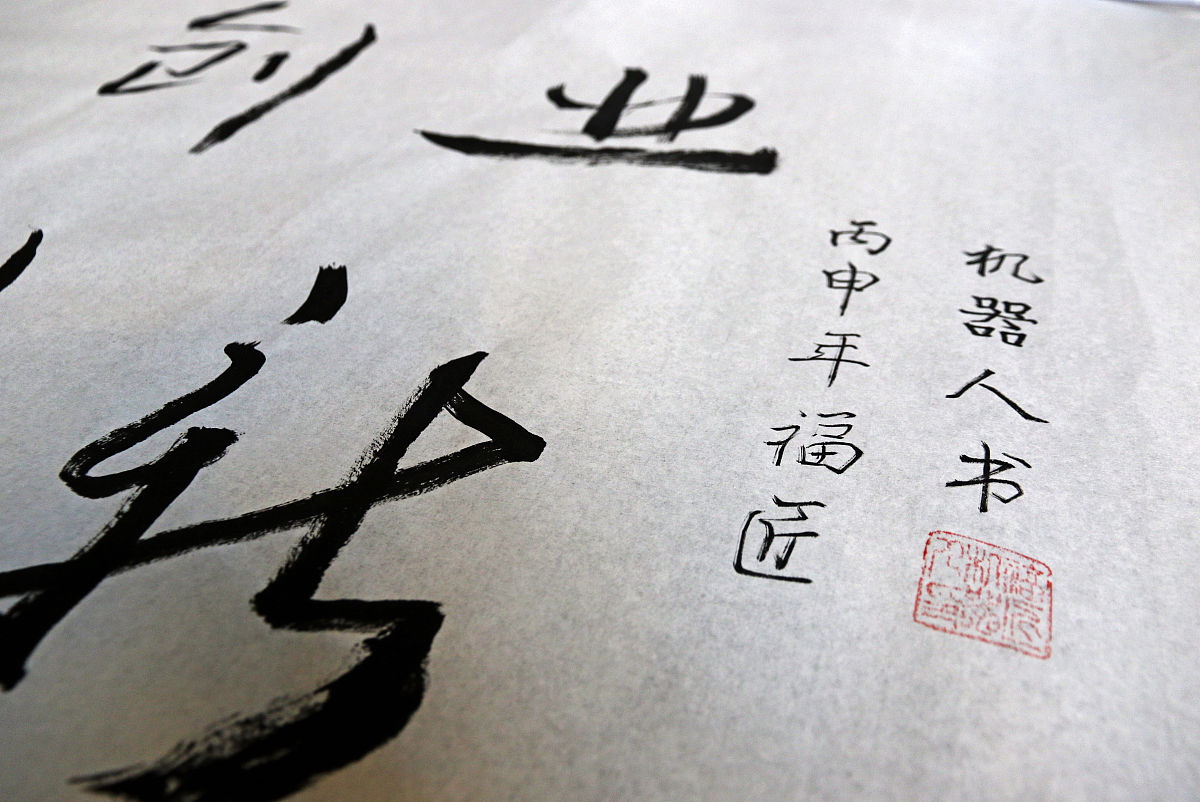 创业
丙申年福匠
机器人书